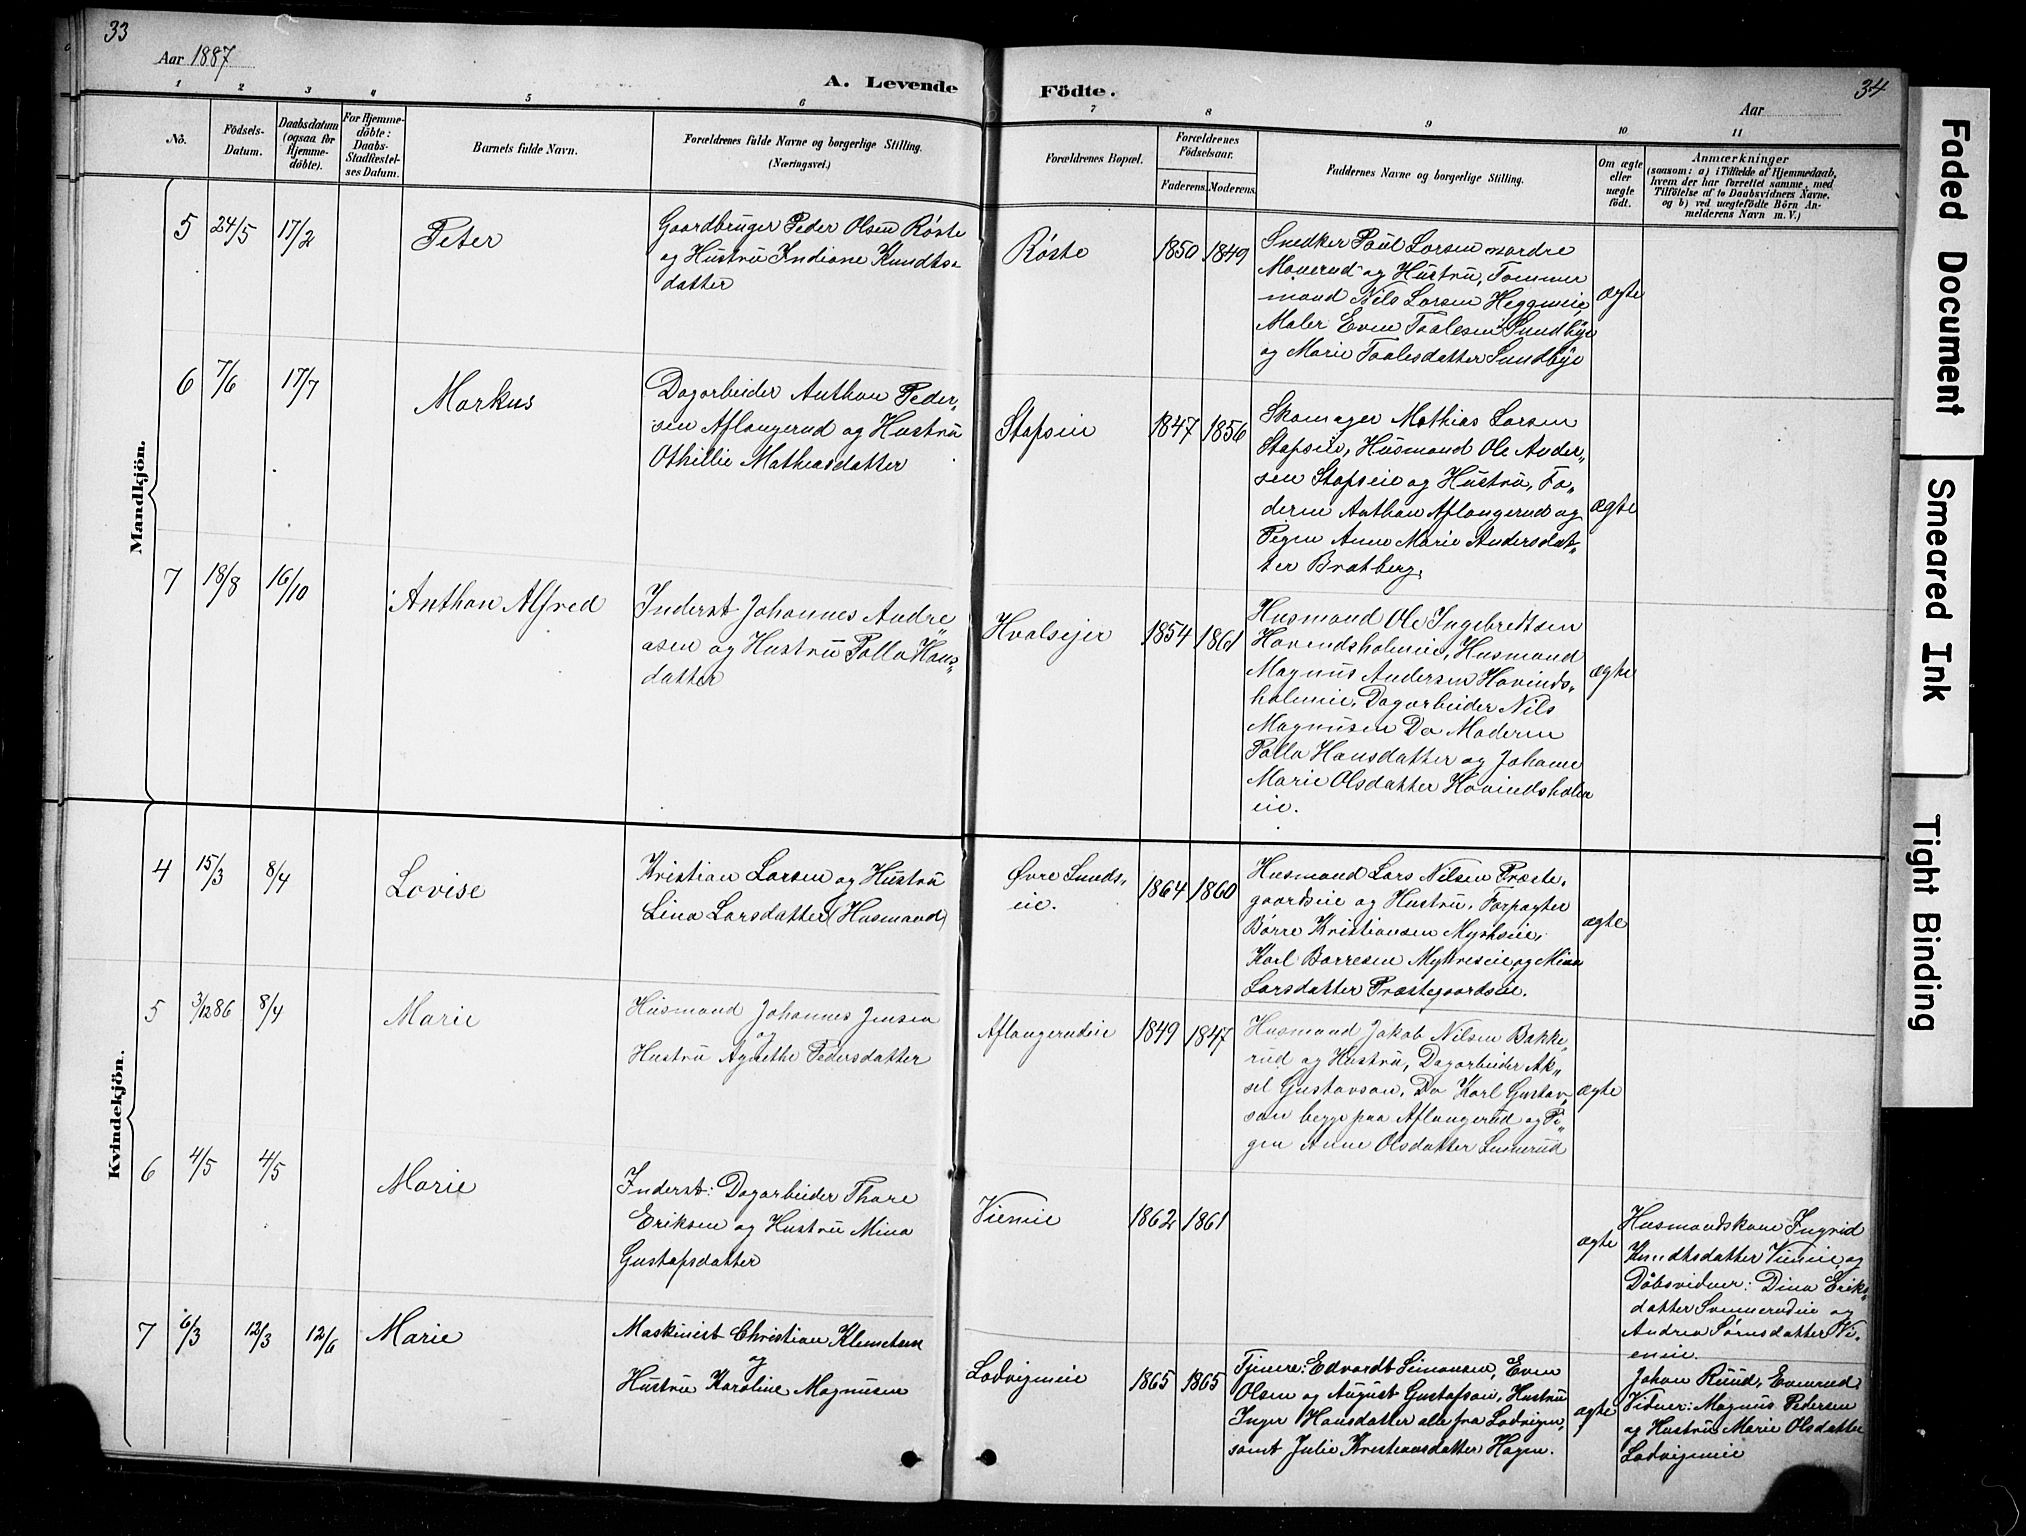 33
Aar 1887
A. Levende
Födte.
34
Aar
1
2
3
4
5
6
7
8
9
10
11
No.
Födsels-
Datum.
Daabsdatum
(ogsaa for
Hjemme-
döbte).
For Hjemme-
döbte:
Daabs-
Stadfæstel-
ses Datum.
Barnets fulde Navn.
Forældrenes fulde Navne og borgerlige Stilling.
(Næringsvei.)
Forældrenes Bopæl.
Forældrenes
Födselsaar.
Faderens.
Moderens.
Faddernes Navne og borgerlige Stilling.
Om ægte
eller
uægte
födt.
Anmærkninger
(saasom: a) i Tilfælde af Hjemmedaab,
hvem der har forrettet samme, med
Tilföielse af to Daabsvidners Navne.
og b) ved uægtefödte Börn An-
melderens Navn m. V.)
Mandkjön.
5
24/5
17/2
Peter
Gaardbruger Peder Olsen Røste
og Hustru Indiane Knudts-
datter
Røste
1850
1849
Snedker Paul Larsen nordre
Mauerud og Hustru, Tømmer
mand Nils Larsen Heggneie,
Maler Even Taalesen Sundbye
og Marie Taalesdatter Sundbye
ægte
6
7/6
17/7
Markus
Dagarbeider Anthon Peder-
sen Aflangerud og Hustru
Othillie Mathiasdatter
Stafseie
1847
1856
Skomager Mathias Larsen
Stafseie, Husmand Ole Ander-
sen Stafseie og Hustru, Fa-
deren Anthon Aflangerud og
Pigen Anne Marie Andersdat-
ter Bratberg.
ægte
7
18/8
16/10
Anthon Alfred
Inderst Johannes Andre
asen og Hustru Palla Hans-
datter
Hvalsejer
1854
1861
Husmand Ole Ingebretsen
Hovendsholmeie, Husmand
Magnus Andersen Hovinds-
holmeie, Dagarbeider Nils
Magnusen Do Moderen
Palla Hansdatter og Johanne
Marie Olsdatter Hovindsholm
eie.
ægte
Kvindekjön.
4
15/3
8/4
Lovise
Kristian Larsen og Hustru
Lina Larsdatter (Husmand)
Øvre Sunds-
eie.
1864
1860
Husmand Lars Nilsen Præste-
gaardseie og Hustru, Forpagter
Børre Kristiansen
Karl Børresen og Mina
Larsdatter Præstegaardseie.
ægte
5
3/12 86
8/4
Marie
Husmand Johannes Jensen
og
Hustru Agnethe Pedersdatter
Aflangerudeie
1849
1847
Husmand Jakob Nilsen Bakke-
rud og Hustru, Dagarbeider Ak-
sel Gustavson, Do Karl Gustav-
son begge paa Aflangerud og Pi-
gen Anne Olsdatter
ægte
6
4/5
4/5
Marie
Inderst: Dagarbeider Thore
Eriksen og Hustru Mina
Gustafsdatter
Vieneie
1862
1861
ægte
Husmandskone Ingrid
Knudtsdatter Vieneie og
Döbsvidner: Dina Eriks-
datter og
Andrea Sørnsdatter Vi-
eneie.
7
6/3
12/3
12/6
Marie
Maskinist Christian Klemetsen
og
Hustru Karoline Magnusen
Ladvigneie
1865
1865
Tjenere: Edvardt Simonsen, Even
Olsen og August Gustafson, Hustru
Inger Hansdatter alle fra Ladvigen,
samt Julie Kristiansdatter Hagen.
ægte
Johan Ruud, Evenrud,
Vidner: Magnus Pedersen
og Hustru Marie Olsdatter
Ladvigneie
Faded Document
Smeared Ink
Tight Binding